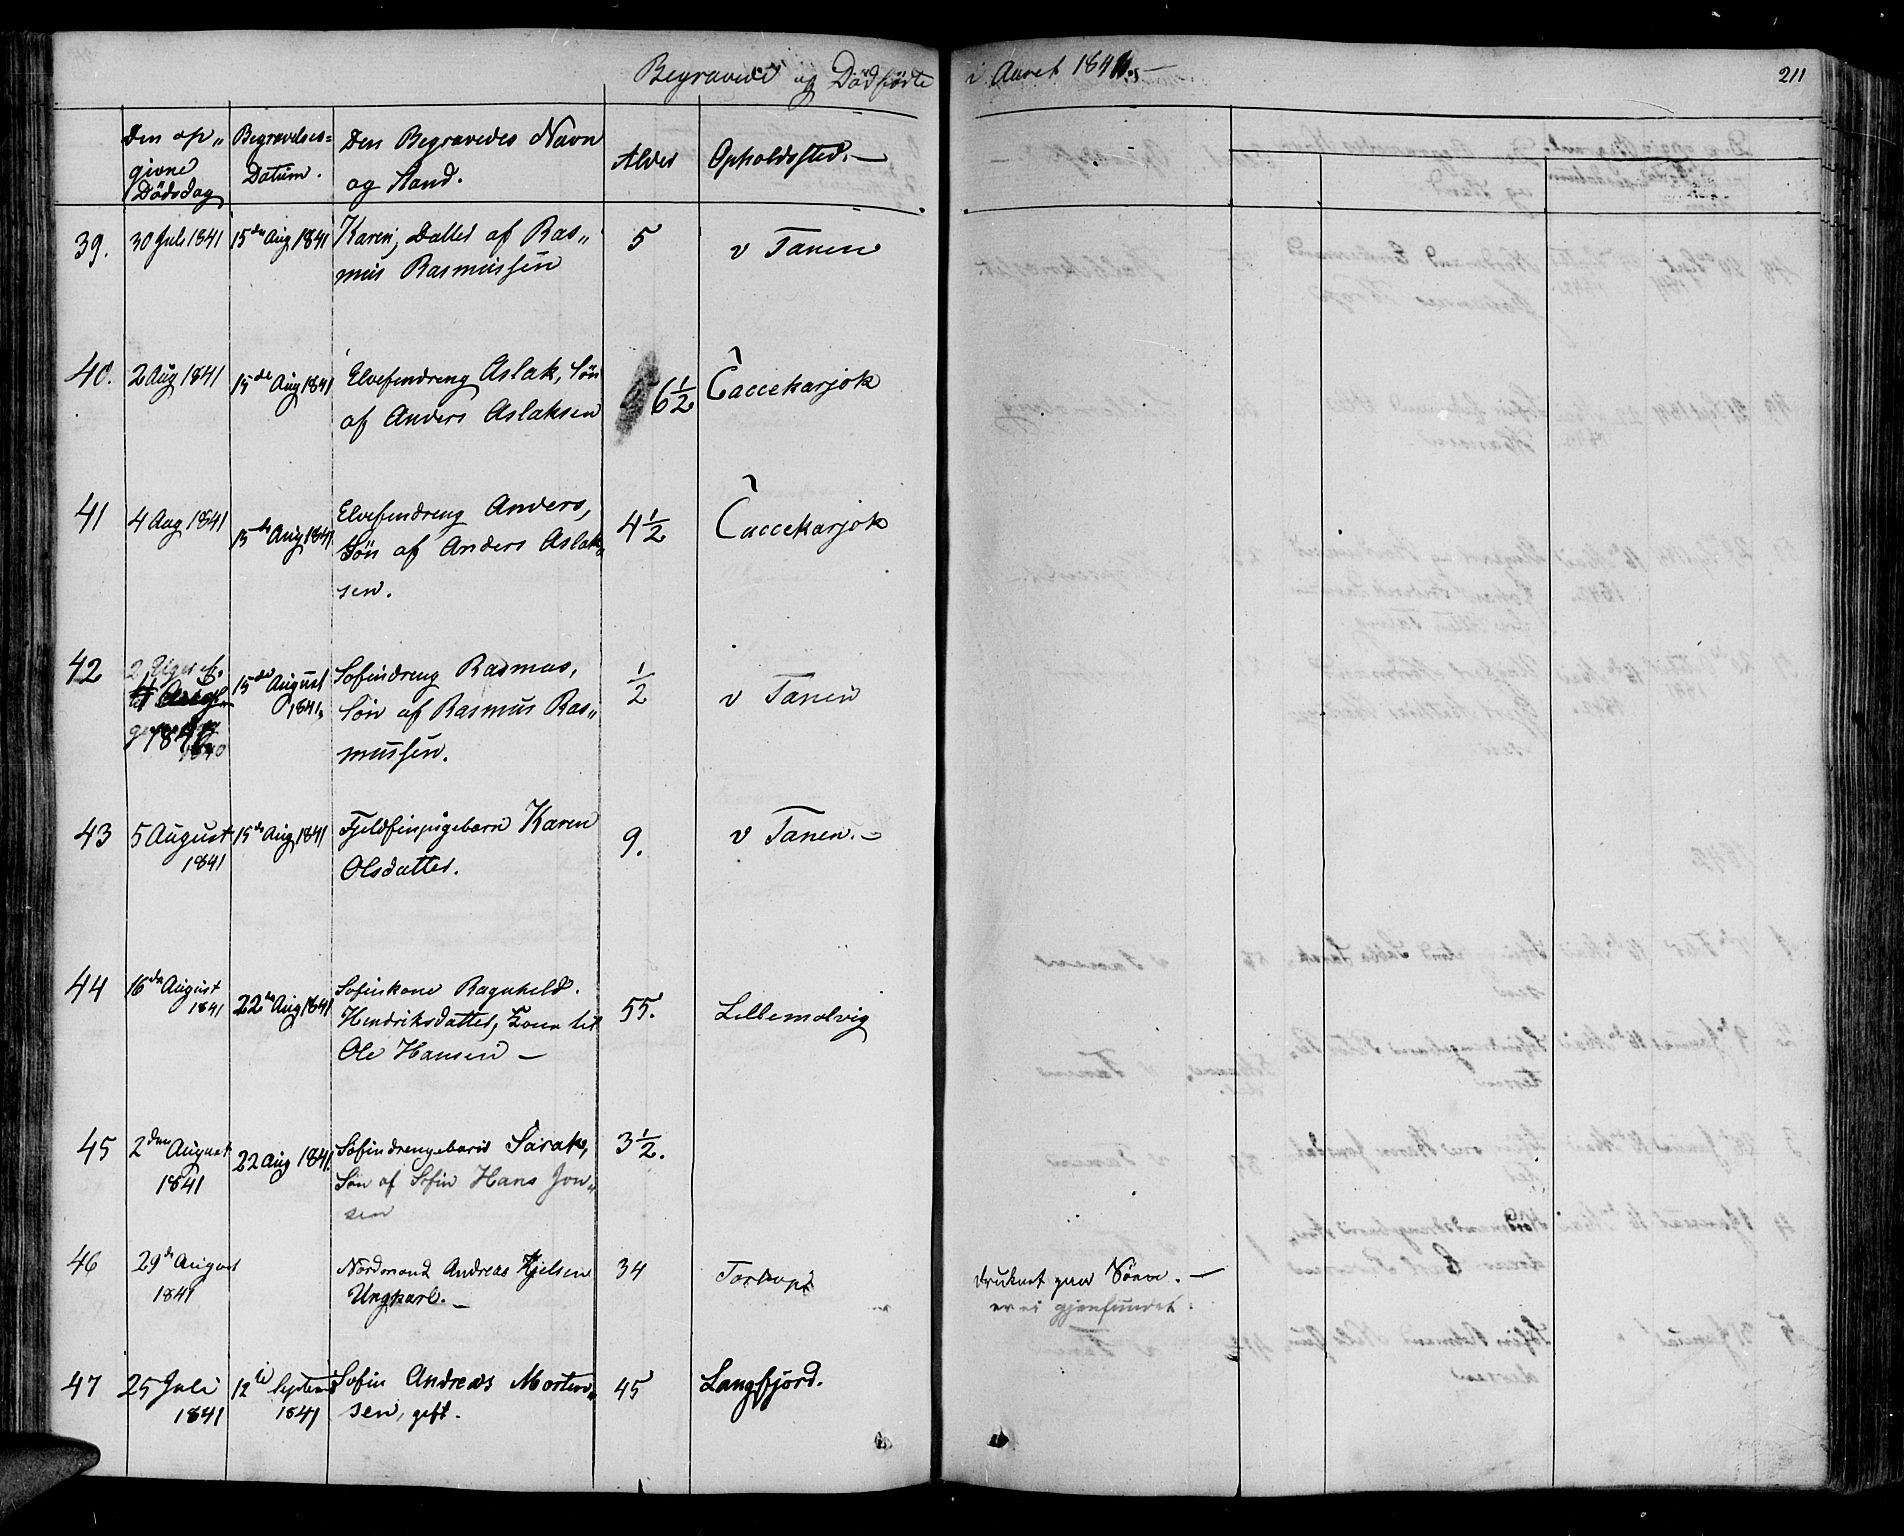 Begravede og Dødfødte i Aaret 1841. —
211
Den op„
givne
Dødsdag
Begravelses=
Datum.
Den Begravedes Navn
og Stand.
Alder
Opholdssted. —
39. 30 Juli 1841 15de Aug 1841 Karen, Datter af Ras„ 5 v Tanen
mus Rasmussen
40. 2 Aug 1841 15de Aug 1841 Elvefindreng Aslak, Søn 6½ Čaccekarjok
af Anders Aslaksen
41 4 Aug 1841 15de Aug 1841 Elvefindreng Anders, 4½ Čaccekarjok
Søn af Anders Aslak„
sen.
42 15de August Søfindreng Rasmus, ½ v Tanen
1841. Søn af Rasmus Ras„
mussen.
43 5 August 15de Aug 1841 Fjeldfinpigebarn Karen 9. v Tanen. —
1841 Olsdatter.
44 16de August 22de Aug 1841 Søfinkone Ragnhild 55. Lillemolvig
1841 Hendriksdatter, Kone til
Ole Hansen —
45 2den August 22 Aug 1841. Søfindrengebarn Sarak, 3½.
1841 Søn af Søfin Hans Jon„
sen
46 29de August Nordmand Andreas Kjelsen 34 druknet paa Søen. —
1841 Ungkarl. — er ei gjenfundet.
47 25 Juli 12te September Søfin Andreas Morten„ 45 Langfjord.
1841 1841 sen, gift.